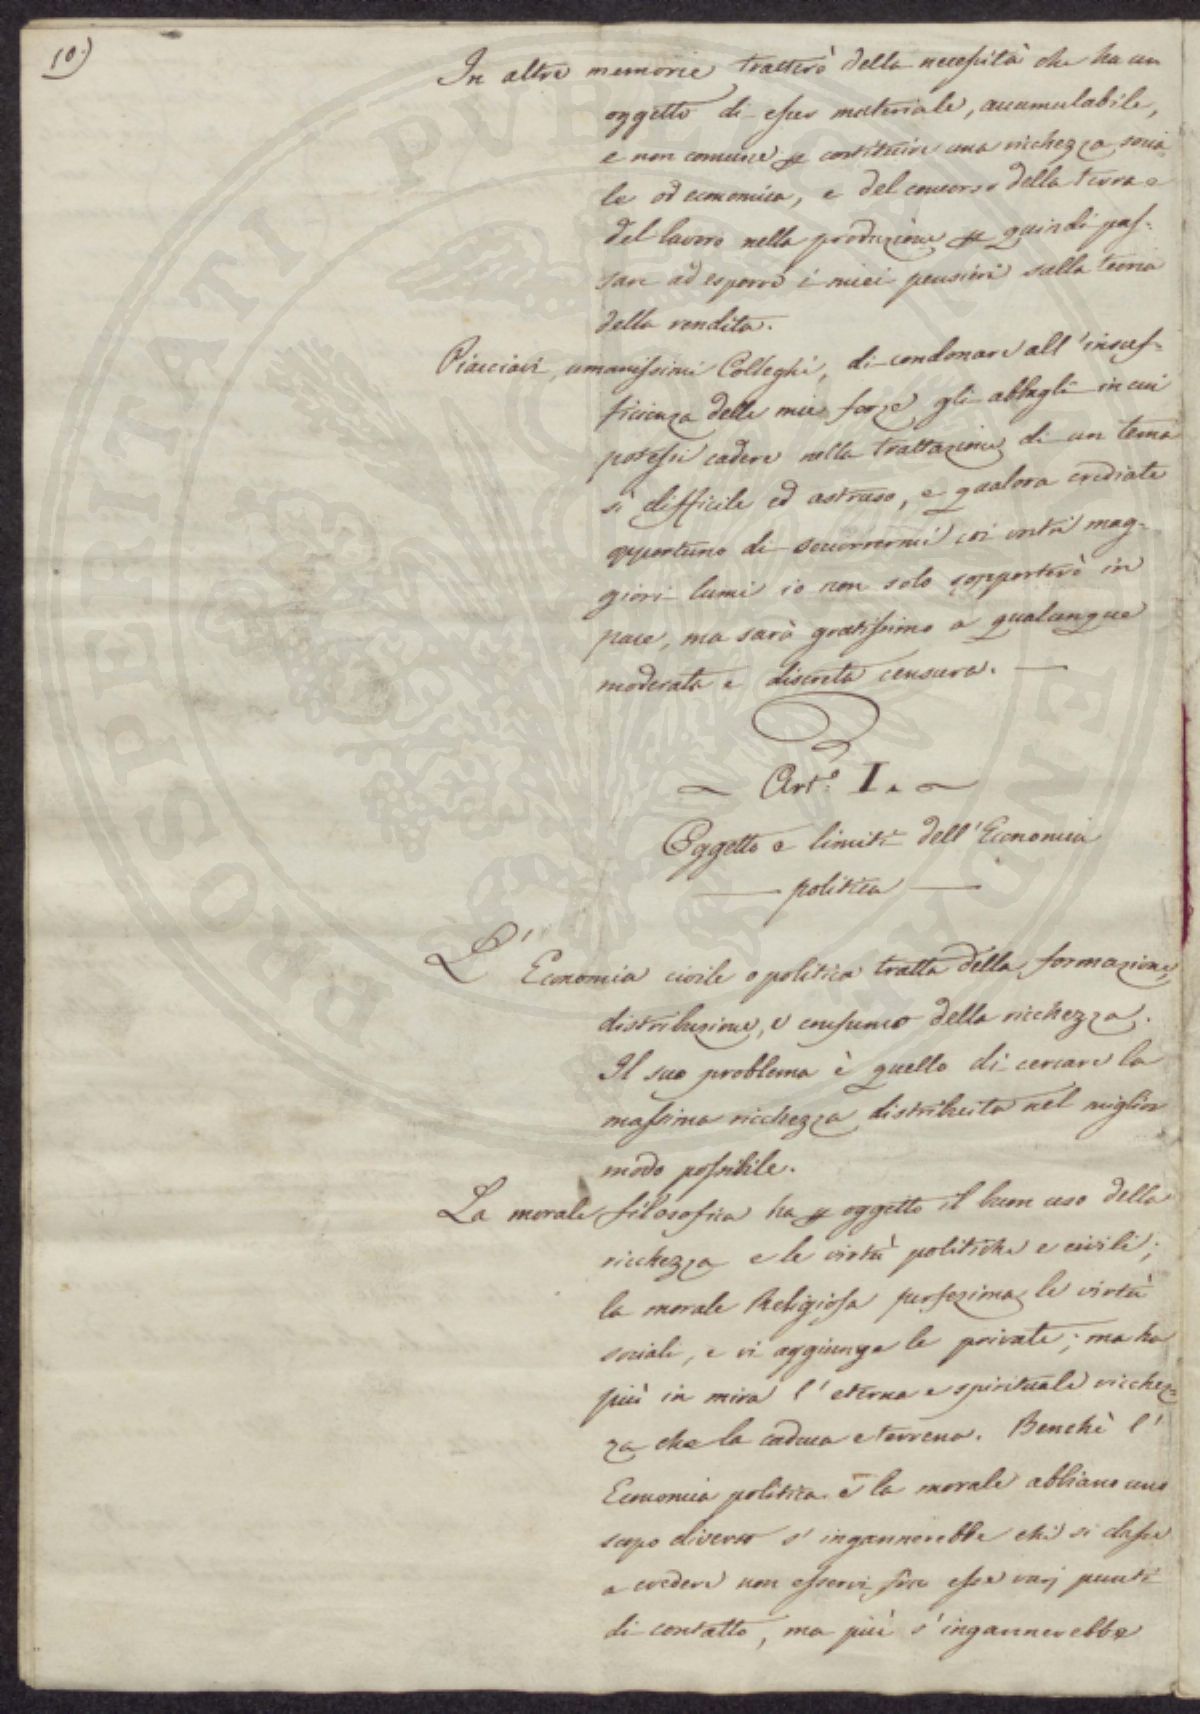 10.)
In altre memorie tratterò della necessità che ha un
oggetto di esser materiale, accumulabile,
e non comune per costituire una ricchezza socia-
le od economica, e del concorso della terra e
del lavoro nella produzione per quindi pas-
sare ad esporre i miei pensieri sulla teoria
della rendita.
Piacciavi, umanissimi Colleghi, di condonare all'insuf-
ficienza delle mie forze gli abbagli in cui
potessi cadere nella trattazione di un tema
sì difficile ed astruso, e qualora crediate
opportuno di soccorrermi coi vostri mag-
giori lumi io non solo sopporterò in
pace, ma sarò gratissimo a qualunque
moderata e discreta censura. —
~ Art.º I. ~
Oggetto e limiti dell'Economia
— politica —
L'Economia civile o politica tratta della formazione,
distribuzione, e consumo della ricchezza.
Il suo problema è quello di cercare la
massima ricchezza distribuita nel miglior
modo possibile.
La morale filosofica ha per oggetto il buon uso della
ricchezza e le virtù politiche e civili;
la morale Religiosa perfeziona le virtù
sociali, e vi aggiunge le private; ma ha
più in mira l'eterna e spirituale ricchez-
za che la caduca e terrena. Benchè l'
Economia politica e la morale abbiano uno
scopo diverso s'ingannerebbe chi si dasse
a credere non esservi fra esse varj punti
di contatto, ma più s'ingannerebbe
PROSPERITATI PUBLICAE AUGENDAE